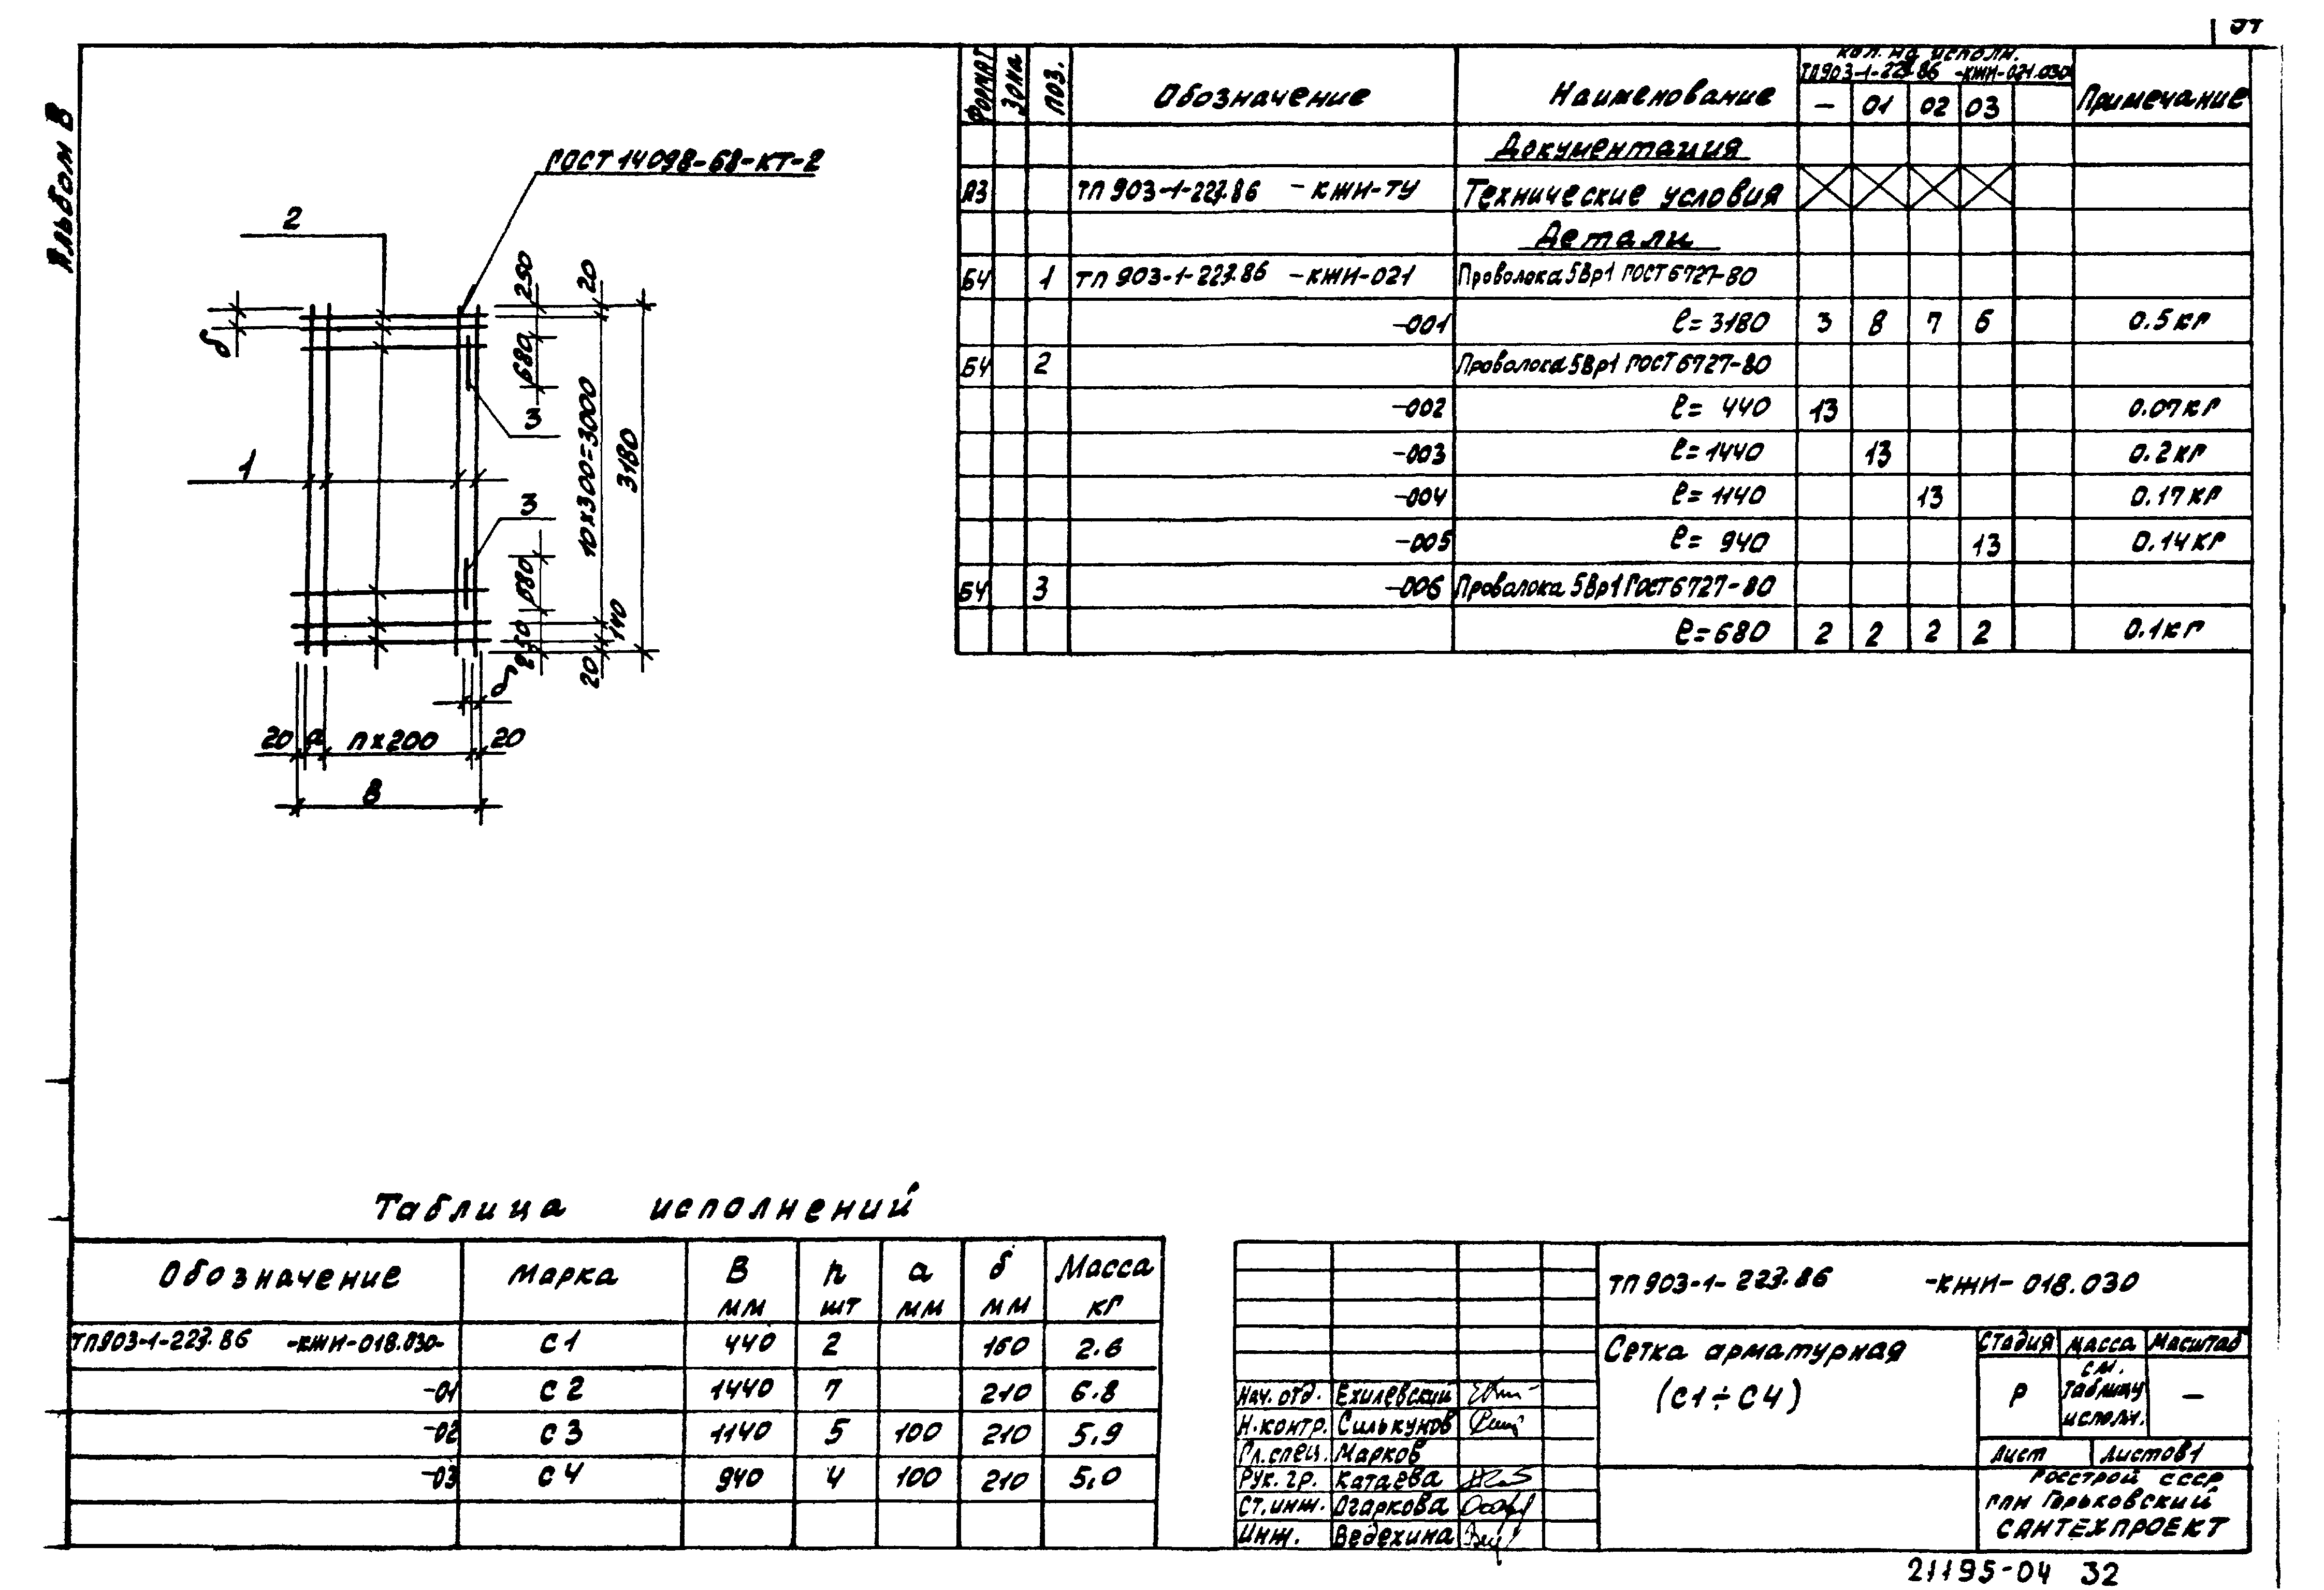 Альбом В
ГОСТ 14098-68-КТ-2
2
250
20
б
680
3
10х300=3000
3180
1
3
680
140
250
20
б
20 а n х 200 20
В
ФОРМАТ Зона Поз. Обозначение Наименование Кол. на исполн. Примечание
ТП903-1-227.86 -КЖИ-021.030
— 01 02 03
Документация
А3 ТП 903-1-227.86 -КЖИ-ТУ Технические условия
Детали
Б4 1 ТП 903-1-227.86 -КЖИ-021 Проволока 5Вр1 ГОСТ 6727-80
-001 ℓ=3180 3 8 7 6 0.5 кг
Б4 2 Проволока 5Вр1 ГОСТ 6727-80
-002 ℓ= 440 13 0.07 кг
-003 ℓ=1440 13 0.2 кг
-004 ℓ=1140 13 0.17 кг
-005 ℓ= 940 13 0.14 кг
Б4 3 -006 Проволока 5Вр1 ГОСТ 6727-80
ℓ=680 2 2 2 2 0.1 кг
Таблица исполнений
Обозначение Марка В мм n шт а мм б мм Масса кг
ТП903-1-227.86 -КЖИ-018.030- С1 440 2 160 2.6
-01 С2 1440 7 210 6.8
-02 С3 1140 5 100 210 5.9
-03 С4 940 4 100 210 5.0
ТП 903-1-227.86 -КЖИ-018.030
Сетка арматурная
(С1÷С4)
Стадия Масса Масштаб
Р см. таблицу исполн. —
Лист Листов 1
Нач. отд. Ехилевский
Н.контр. Силькунов
Гл.спец. Марков
Рук. гр. Катаева
Ст.инж. Огаркова
Инж. Ведехина
Росстрой СССР
ГПИ Горьковский
САНТЕХПРОЕКТ
21195-04 32